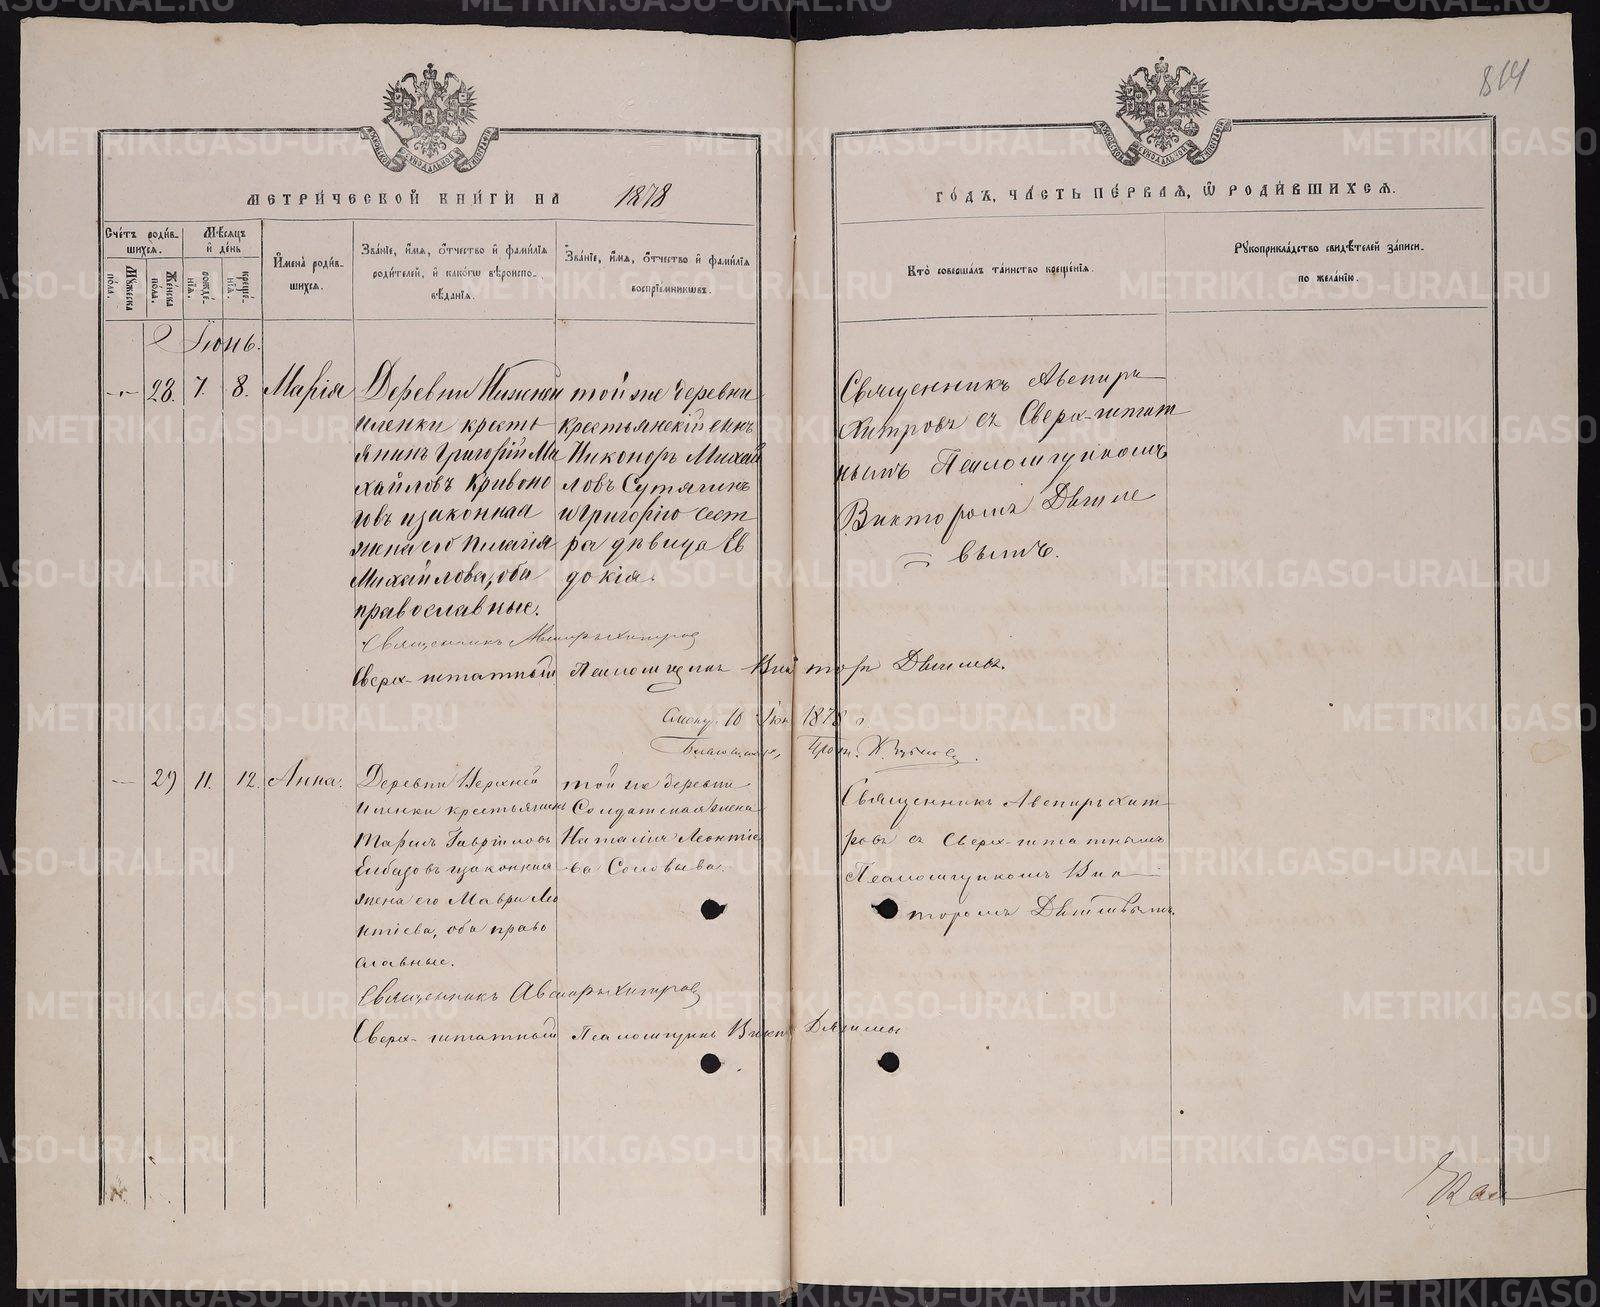 814
МЕТРИ́ЧЕСКОЙ КНИ́ГИ НА 1878
ГО́ДЪ, ЧА́СТЬ ПЕ́РВАЯ, Ѡ҆ РОДИ́ВШИХСЯ.
Сче́тъ роди́вшихся.
Мѣ́сяцъ и҆ де́нь
Му́жеска по́ла.
Же́нска по́ла.
рожде́нїя.
креще́нїя.
И҆мена̀ роди́вшихся.
Зва́нїе, и҆́мя, ѻ҆́тчество и҆ фами́лїя
роди́телей, и҆ како́гѡ вѣроиспо-
вѣ́данїя.
Зва́нїе, и҆́мя, ѻ҆́тчество и҆ фами́лїя
воспрїе́мникѡвъ.
Кто̀ соверша́лъ та́инство креще́нїя.
Рꙋкоприкла́дство свидѣ́телей за́писи
по жела́нїю.
Іюнь.
28. 7. 8. Марія
Деревни Нижней
иленки кресть
янинъ Григорій Ми
хайловъ Кривоно
говъ и законная
жена его Пелагія
Михайлова, оба
православные.
той же деревни
Крестьянскій сынъ
Никоноръ Михай
ловъ Сутягинъ
и Григорію сест
ра дѣвица Ев
докія.
Священникъ Авениръ
Хитровъ съ Сверх-штат
нымъ Псаломщикомъ
Викторомъ Дягиле
вымъ.
Священникъ Авениръ Хитров
Сверх-штатный Псаломщикъ Виктор Дягилевъ.
10 Іюн 1878
29 11. 12. Анна.
Деревни Верхней
иленки крестьянинъ
Гавриловъ
и законная
жена его Мавра Лео
нтіева, оба право
славные.
той же деревни
Солдатская жена
Наталія Леонтіе
ва Соловьева.
Священникъ Авениръ Хит
ровъ съ Сверх-штатнымъ
Псаломщикомъ Вик
торомъ Дягилевымъ.
Священникъ Авениръ Хитров
Сверх-штатный Псаломщикъ Викт Дягилевъ
METRIKI.GASO-URAL.RU